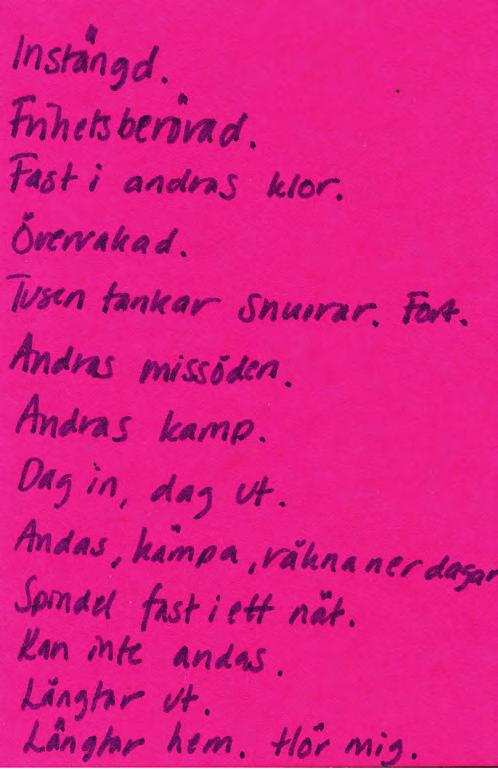 Instängd.
Frihetsberövad.
Fast i andras klor.
Övervakad.
Tusen tankar snurrar. Fort.
Andras missöden.
Andras kamp.
Dag in, dag ut.
Andas, kämpa, räkna ner dagar
Spindel fast i ett nät.
Kan inte andas.
Längtar ut.
Längtar hem. Hör mig.